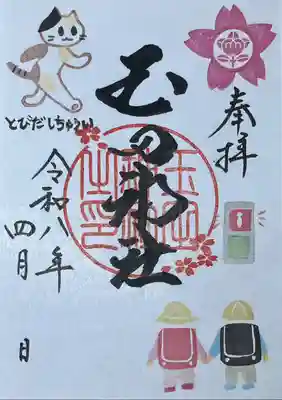 奉拝
玉田神社
とびだしちゅうい
令和八年
四月 日